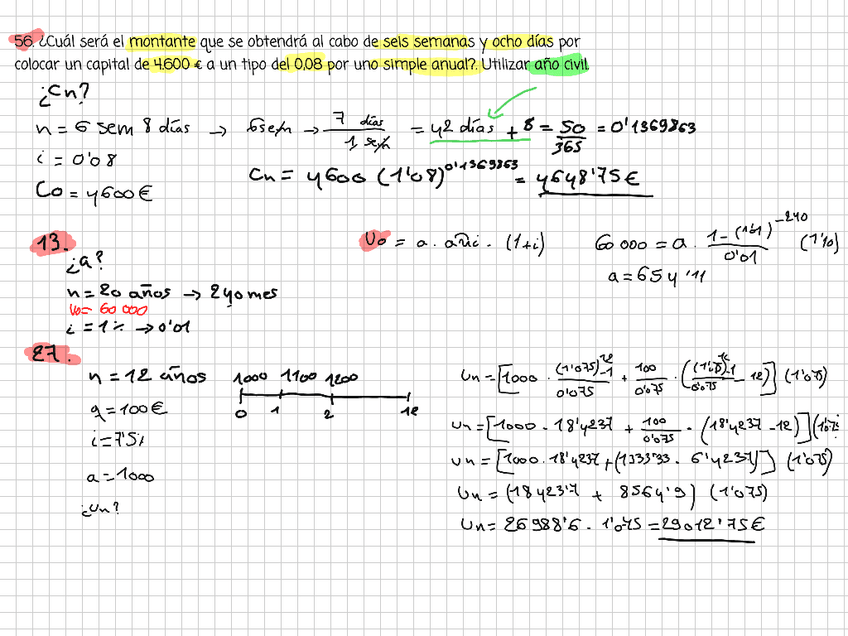 56. ¿Cuál será el montante que se obtendrá al cabo de seis semanas y ocho días por
colocar un capital de 4.600 € a un tipo del 0,08 por uno simple anual?. Utilizar año civil.
¿Cn?
n = 6 sem 8 días → 6sem → 7 días / 1 sem = 42 días + 8 = 50 / 365 = 0'1369863
i = 0'08
Cn = 4600 (1'08)^0'1369863 = 4648'75 €
Co = 4600 €
13.
Vo = a · än¬i · (1+i)
60 000 = a · 1 - (1'01)^-240 / 0'01 (1'10)
¿a?
a = 654'11
n = 20 años → 240 mes
Vo = 60 000
i = 1% → 0'01
27.
n = 12 años
1000 1100 1200
0 1 2 12
q = 100 €
i = 7'5%
a = 1000
¿Un?
Un = [1000 · (1'075)^12 - 1 / 0'075 + 100 / 0'075 · ((1'075)^12 - 1 / 0'075 - 12)] (1'075)
Un = [1000 · 18'4237 + 100 / 0'075 · (18'4237 - 12)] (1'075
Un = [1000 · 18'4237 + (1333'33 · 6'4237)] (1'075)
Un = (18423'7 + 8564'9) (1'075)
Un = 26988'6 · 1'075 = 29012'75 €